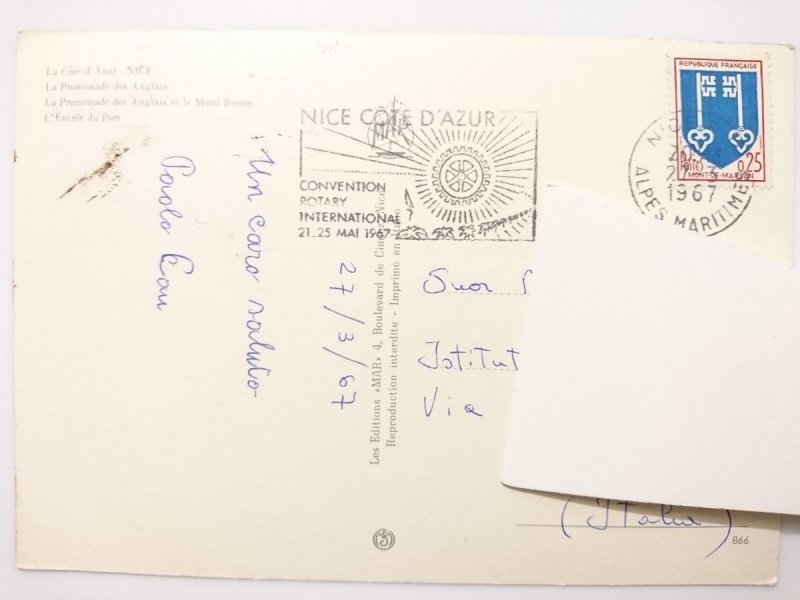 La Côte d'Azur - NICE
La Promenade des Anglais
La Promenade des Anglais et le Mont Boron
L'Entrée du Port
NICE CÔTE D'AZUR
CONVENTION
ROTARY
INTERNATIONAL
21.25 MAI 1967
REPUBLIQUE FRANÇAISE
POSTES 0,25
MONT-DE-MARSAN
1967
ALPES MARITIMES
Un caro saluto
Paolo
27/3/67
Les Editions «MAR» 4, Boulevard de Nice
Reproduction interdite - Imprimé en
Suor
Istitut
Via
(Italia)
866